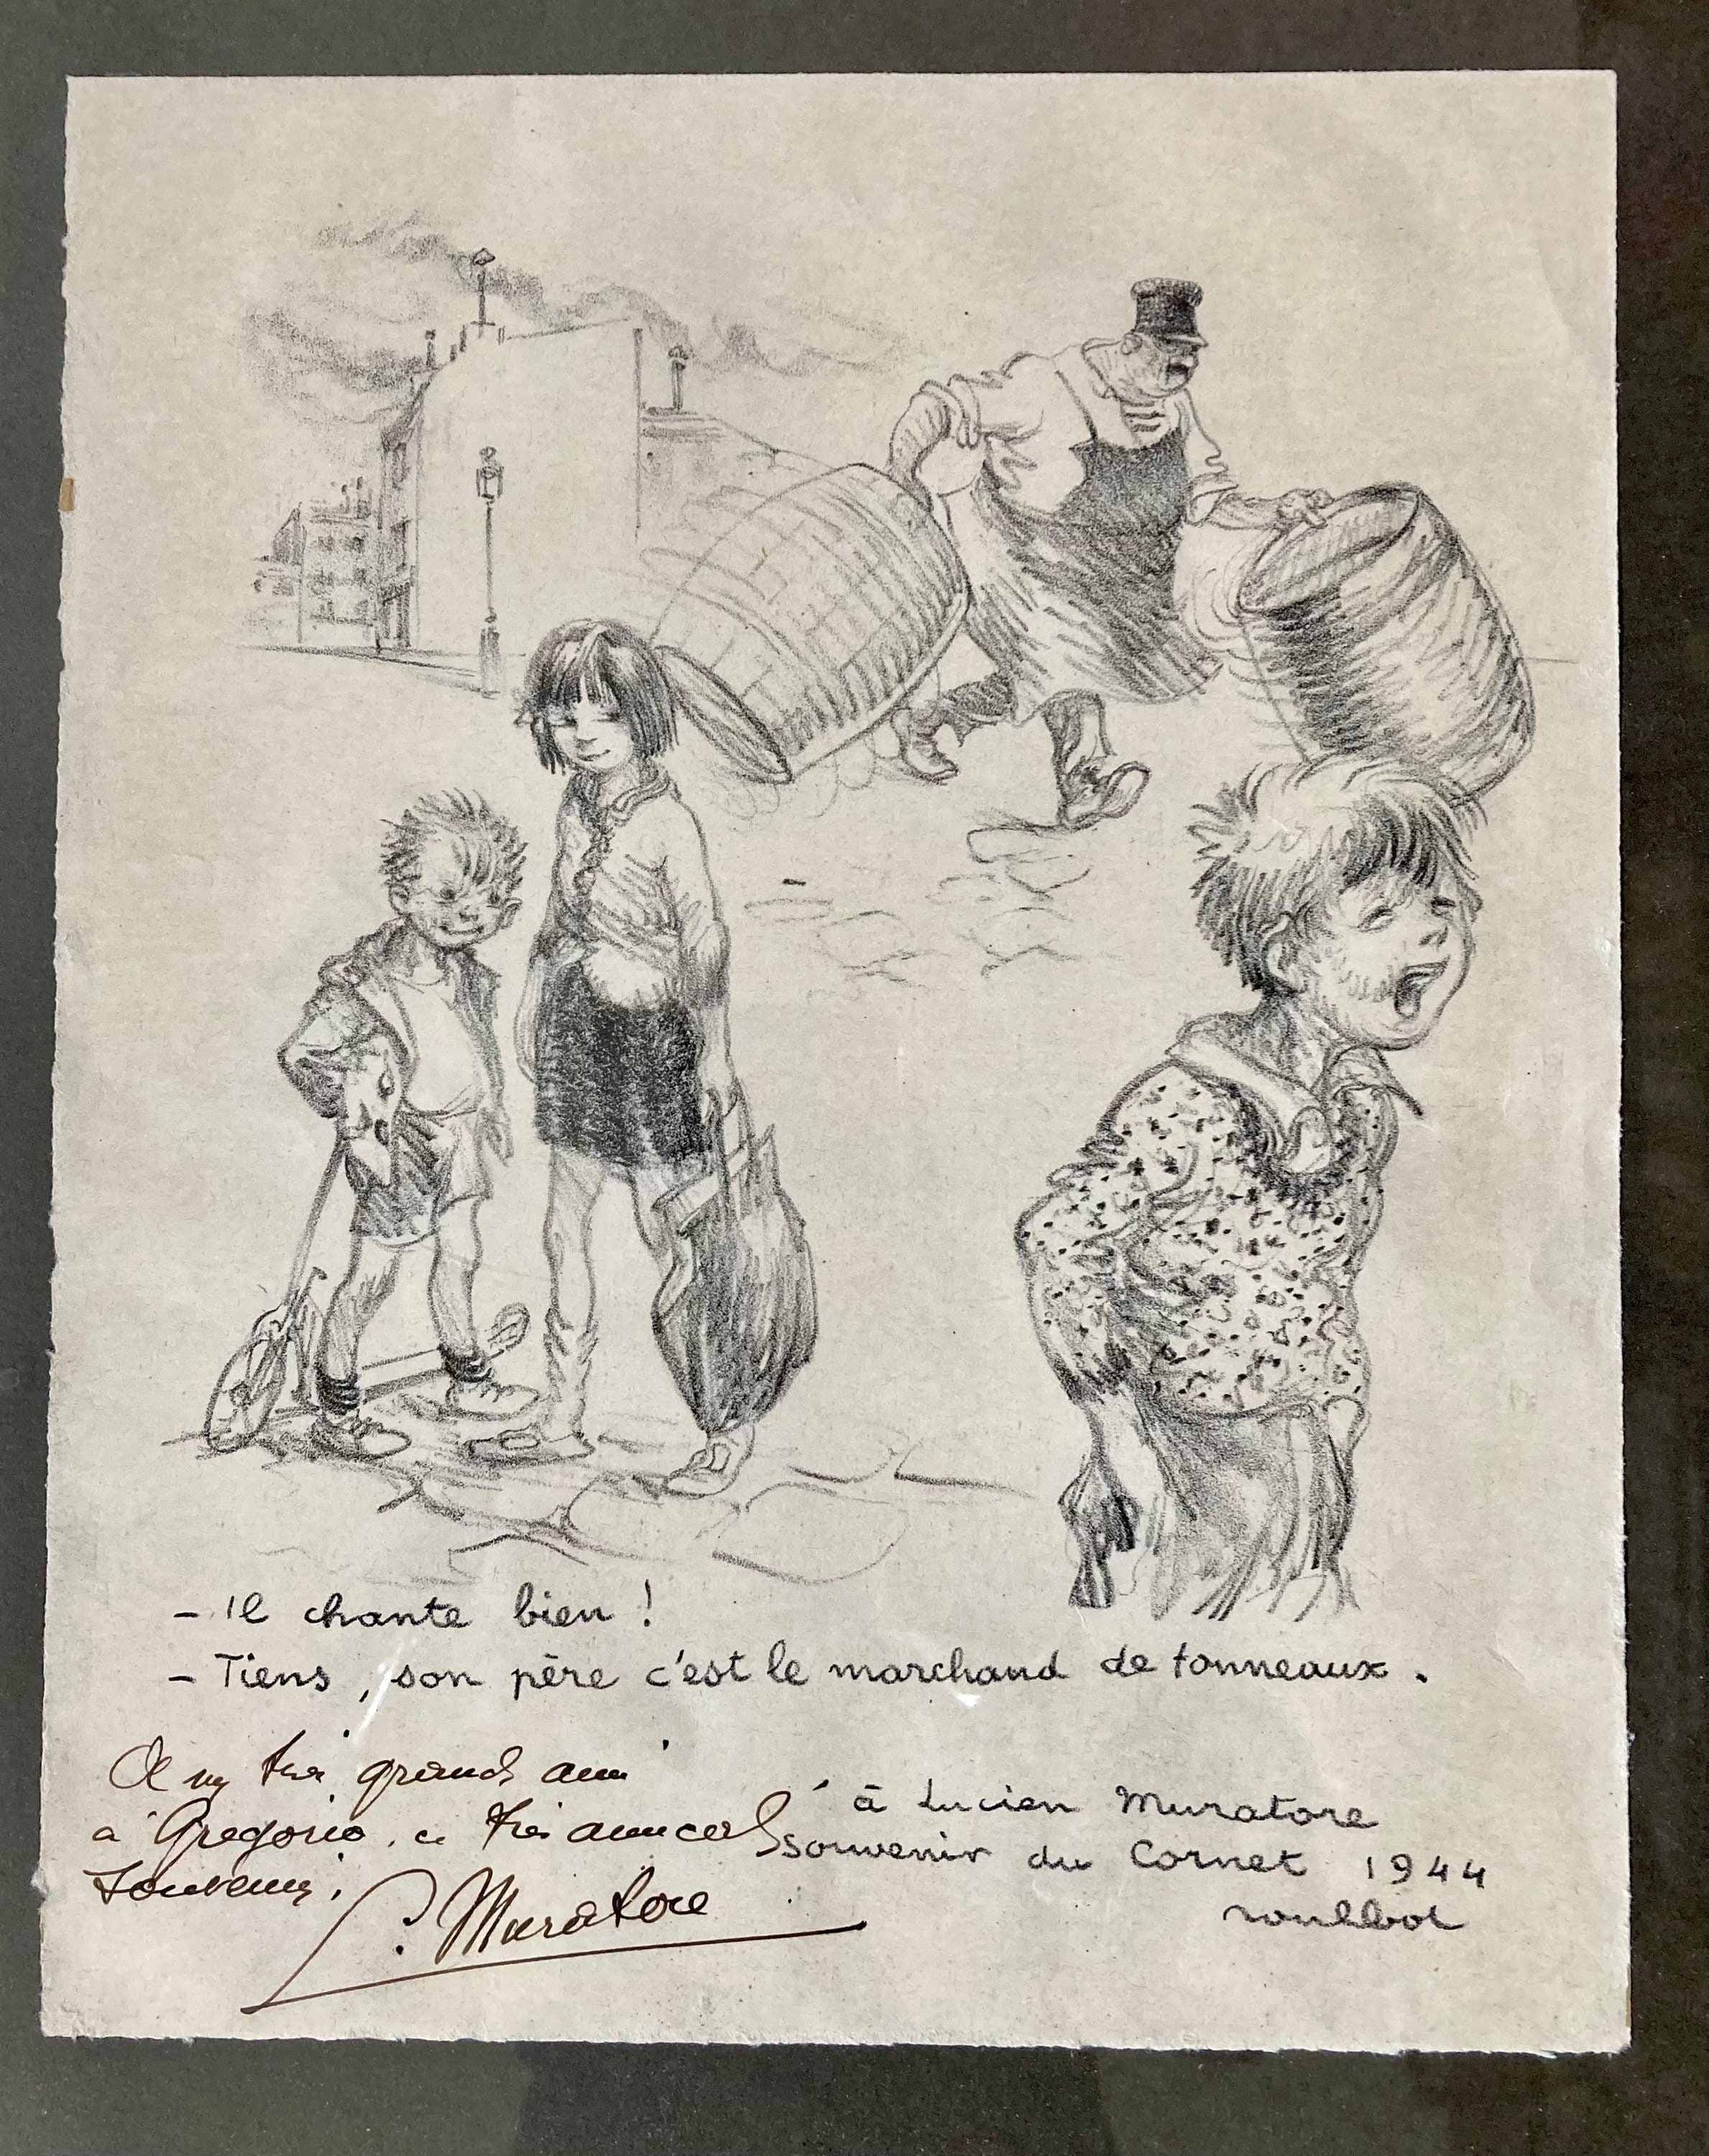 - Il chante bien !
- Tiens, son père c'est le marchand de tonneaux.
à Lucien Muratore
souvenir du Cornet 1944
poulbot
A mon très grand ami
à Gregorio, ce très amical
Souvenir,
L. Muratore